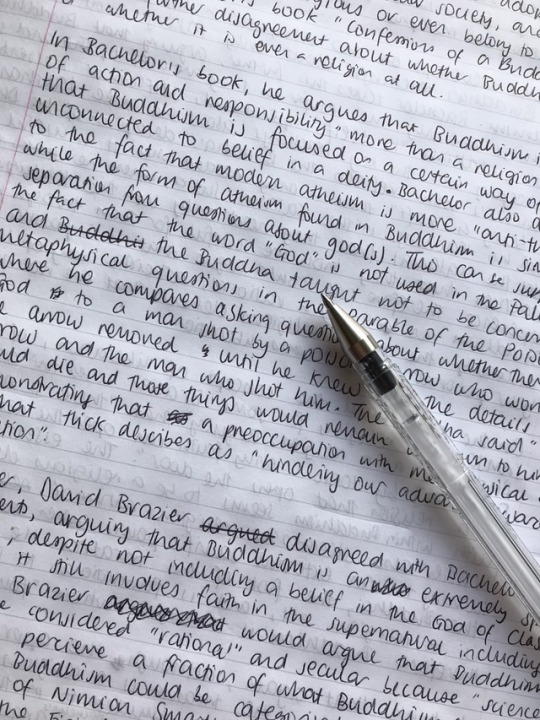 society, and
gious or ever belong to
disagreement about whether Buddh
whether it is book "Confession of a Budd
ever a religion at all.
In Bachelor's book, he argues that Buddhism i
of action and responsibility" more than a religion
that Buddhism is focused on a certain way of
unconnected to belief in a deity. Bachelor also a
to the fact that modern atheism is more "anti-th
while the form of atheism found in Buddhism is sim
separation from questions about god(s). This can be
the fact that the word "God" is not used in the Pali
and Buddhi the Buddha taught not to be concer
metaphysical questions in the parable of the Poiso
where he compares asking about whether ther
God to a man shot by a who won
e arrow removed until he knew the details
row and the man who shot him. The said "
uld die and those things would remain to him
monstrating that a preoccupation with
hat thick describes as "hindering our
tion".
er, David Brazier argued disagreed with Bachelo
arguing that Buddhism is an extremely sp
, despite not including a belief in the God of clas
it still involves faith in the supernatural including
Brazier would argue that Buddhism
e considered "rational" and secular because "science
percieve a fraction of what Buddhism
Buddhism could be
of Ninian Smart
the